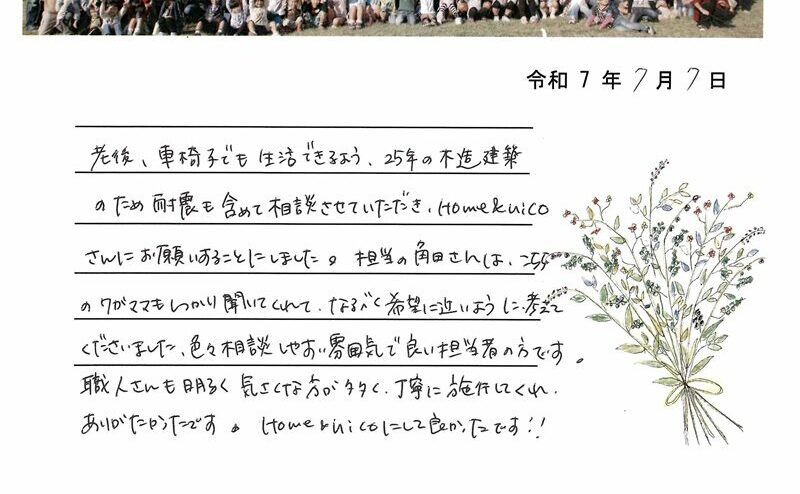 令和 7 年 7 月 7 日
老後、車椅子でも生活できるよう、25年の木造建築
のため耐震も含めて相談させていただき、Home&nico
さんにお願いすることにしました。担当の角田さんは、こちら
のワガママもしっかり聞いてくれて、なるべく希望に近いように考えて
くださいました、色々相談しやすい雰囲気で良い担当者の方です。
職人さんも明るく気さくな方が多く、丁寧に施行してくれ、
ありがたかったです。Home&nicoにして良かったです!!